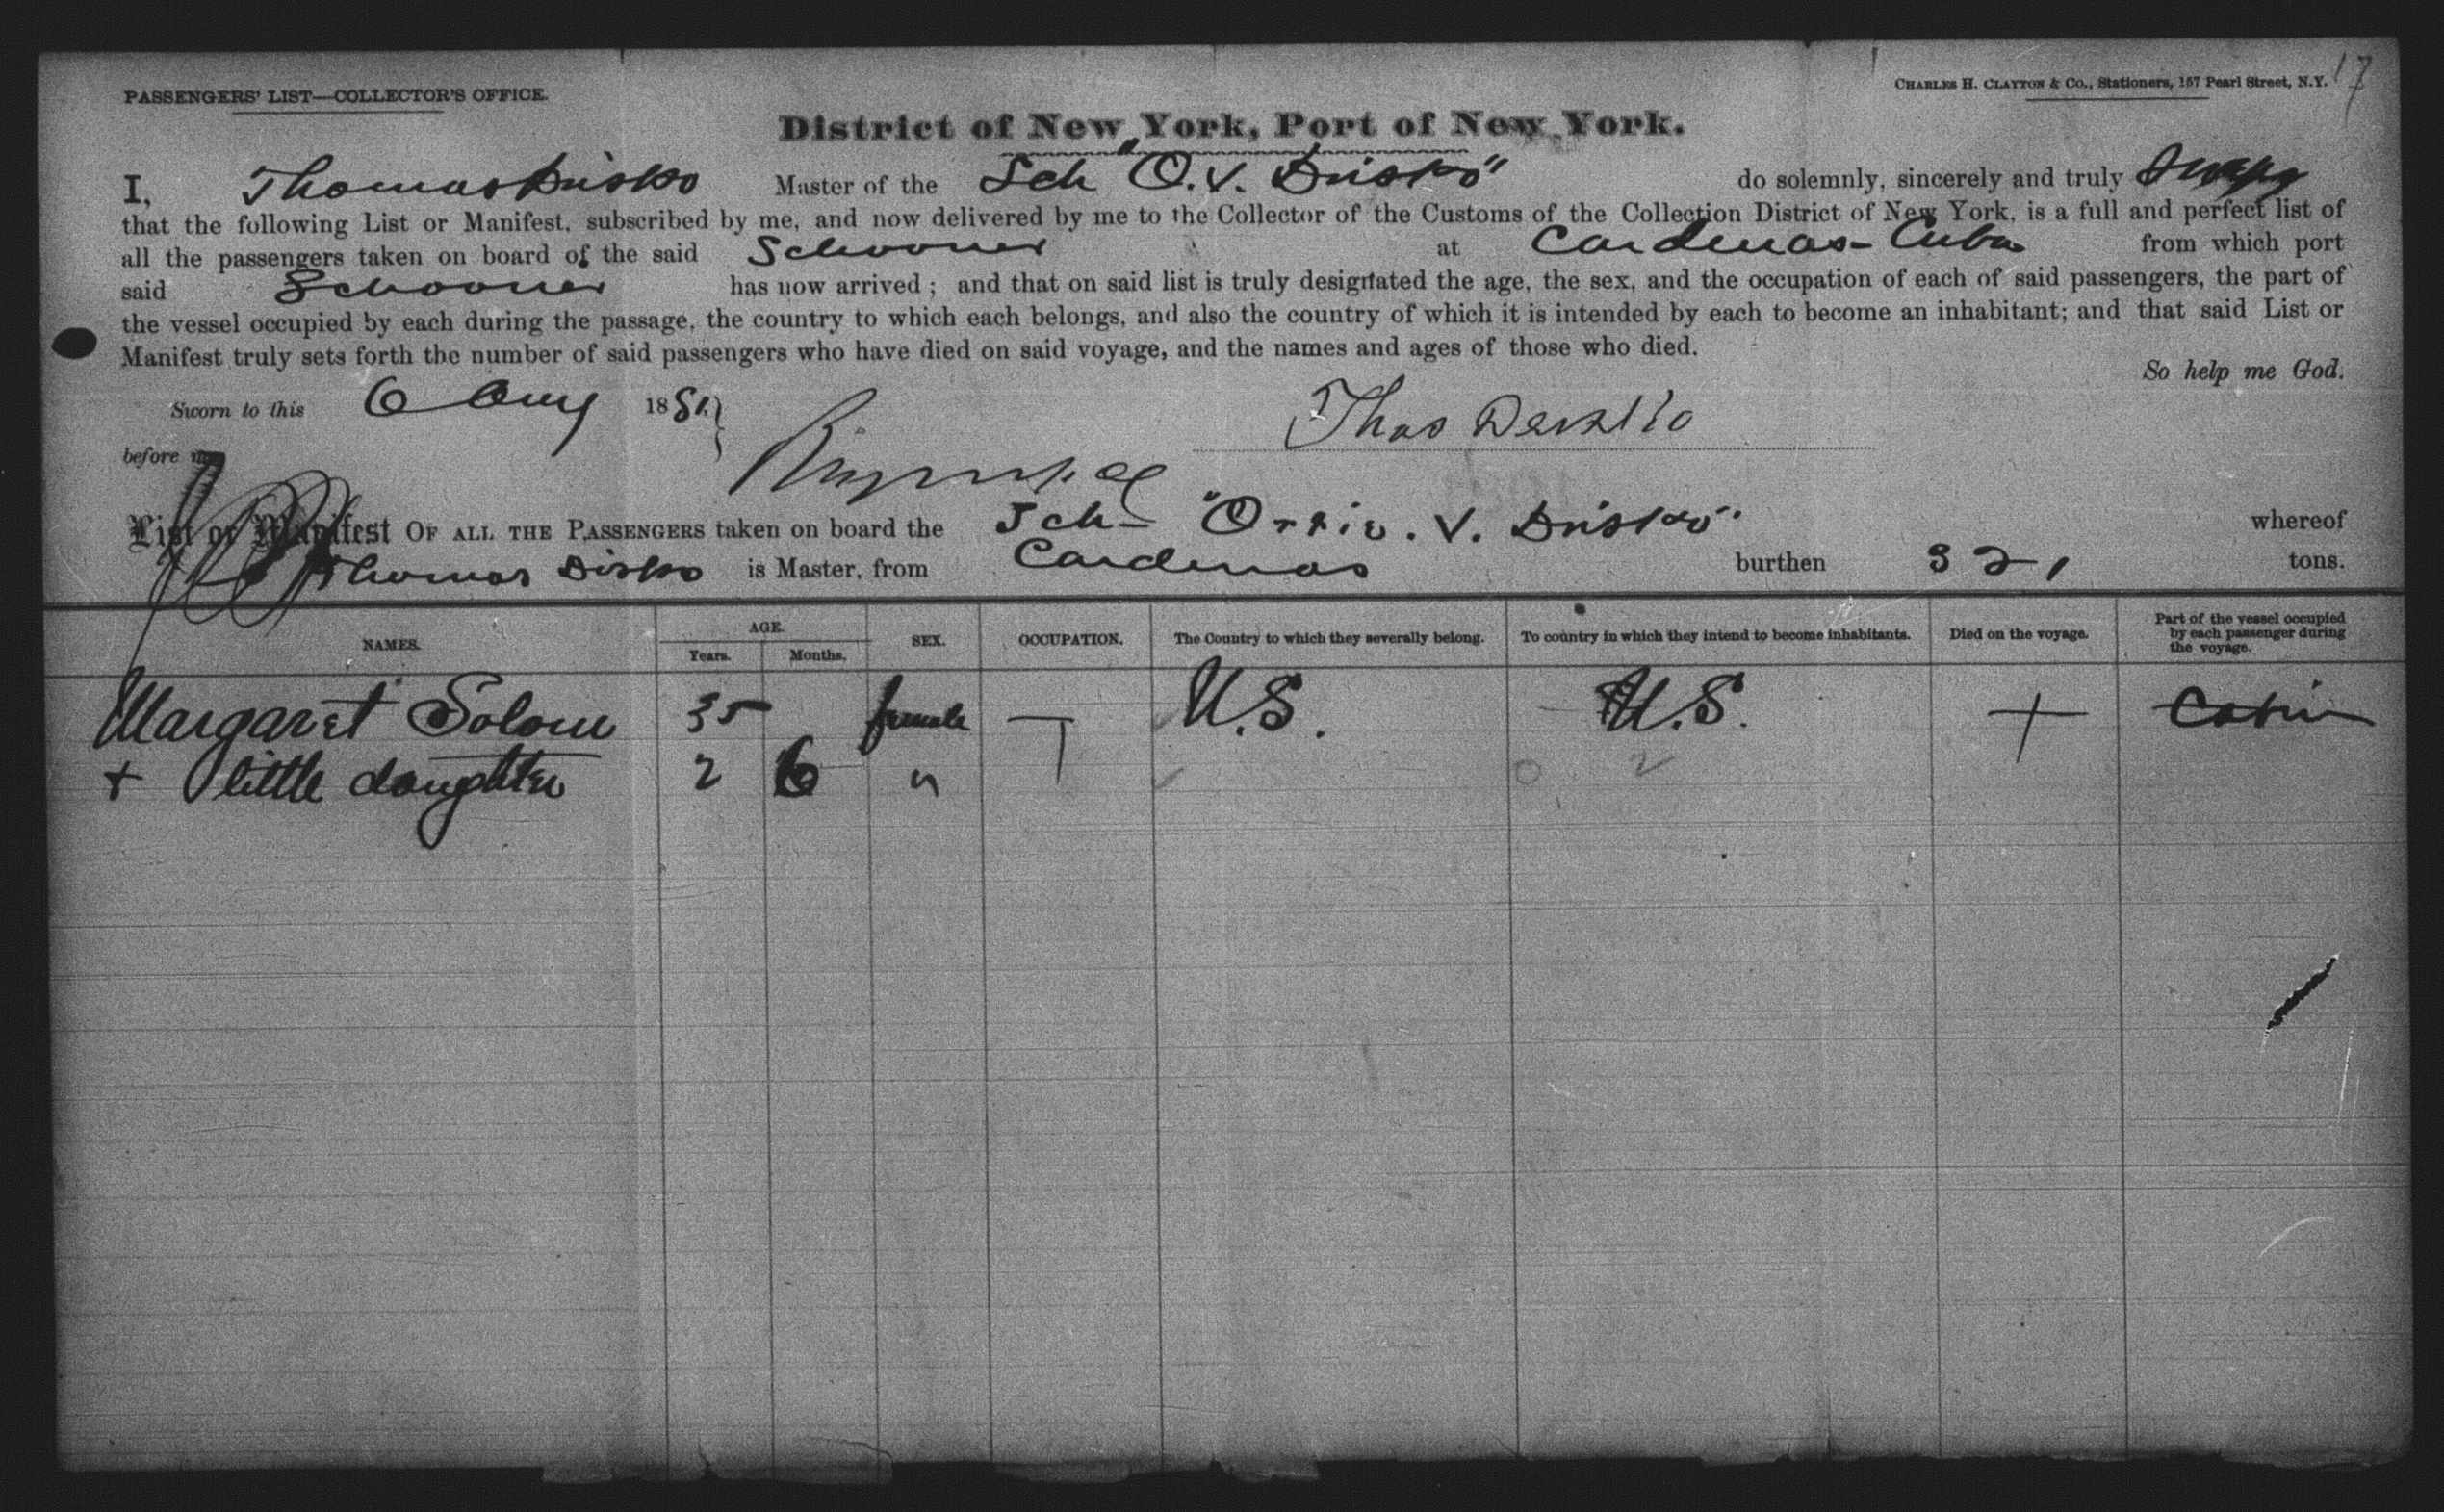 17
PASSENGERS' LIST—COLLECTOR'S OFFICE.
CHARLES H. CLAYTON & CO., Stationers, 157 Pearl Street, N.Y.
District of New York, Port of New York.
I, Thomas Drisko Master of the Sch "O. V. Drisko" do solemnly, sincerely and truly
that the following List or Manifest, subscribed by me, and now delivered by me to the Collector of the Customs of the Collection District of New York, is a full and perfect list of
all the passengers taken on board of the said Schooner at Cardenas - Cuba from which port
said Schooner has now arrived; and that on said list is truly designated the age, the sex, and the occupation of each of said passengers, the part of
the vessel occupied by each during the passage, the country to which each belongs, and also the country of which it is intended by each to become an inhabitant; and that said List or
Manifest truly sets forth the number of said passengers who have died on said voyage, and the names and ages of those who died.
So help me God.
Sworn to this 6 Aug 1881.
Thos Drisko
before me
List or Manifest OF ALL THE PASSENGERS taken on board the Sch - "Orrie. V. Drisko" whereof
Thomas Drisko is Master, from Cardenas burthen 321 tons.
NAMES. AGE. Years. Months. SEX. OCCUPATION. The Country to which they severally belong. To country in which they intend to become inhabitants. Died on the voyage. Part of the vessel occupied by each passenger during the voyage.
Margaret 35 female U.S. U.S. Cabin
+ little daughter 2 6 "